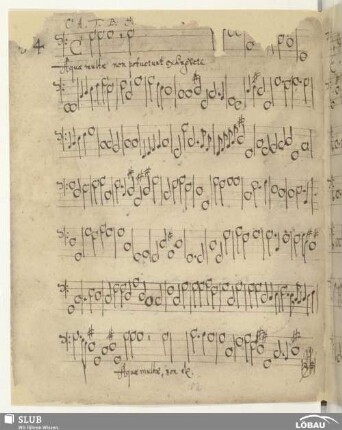 C. A. T. B. G.
4
Aquæ multæ non potuerunt extinguere
Aquæ multæ, non etc.
SLUB
Wir führen Wissen.
LÖBAU